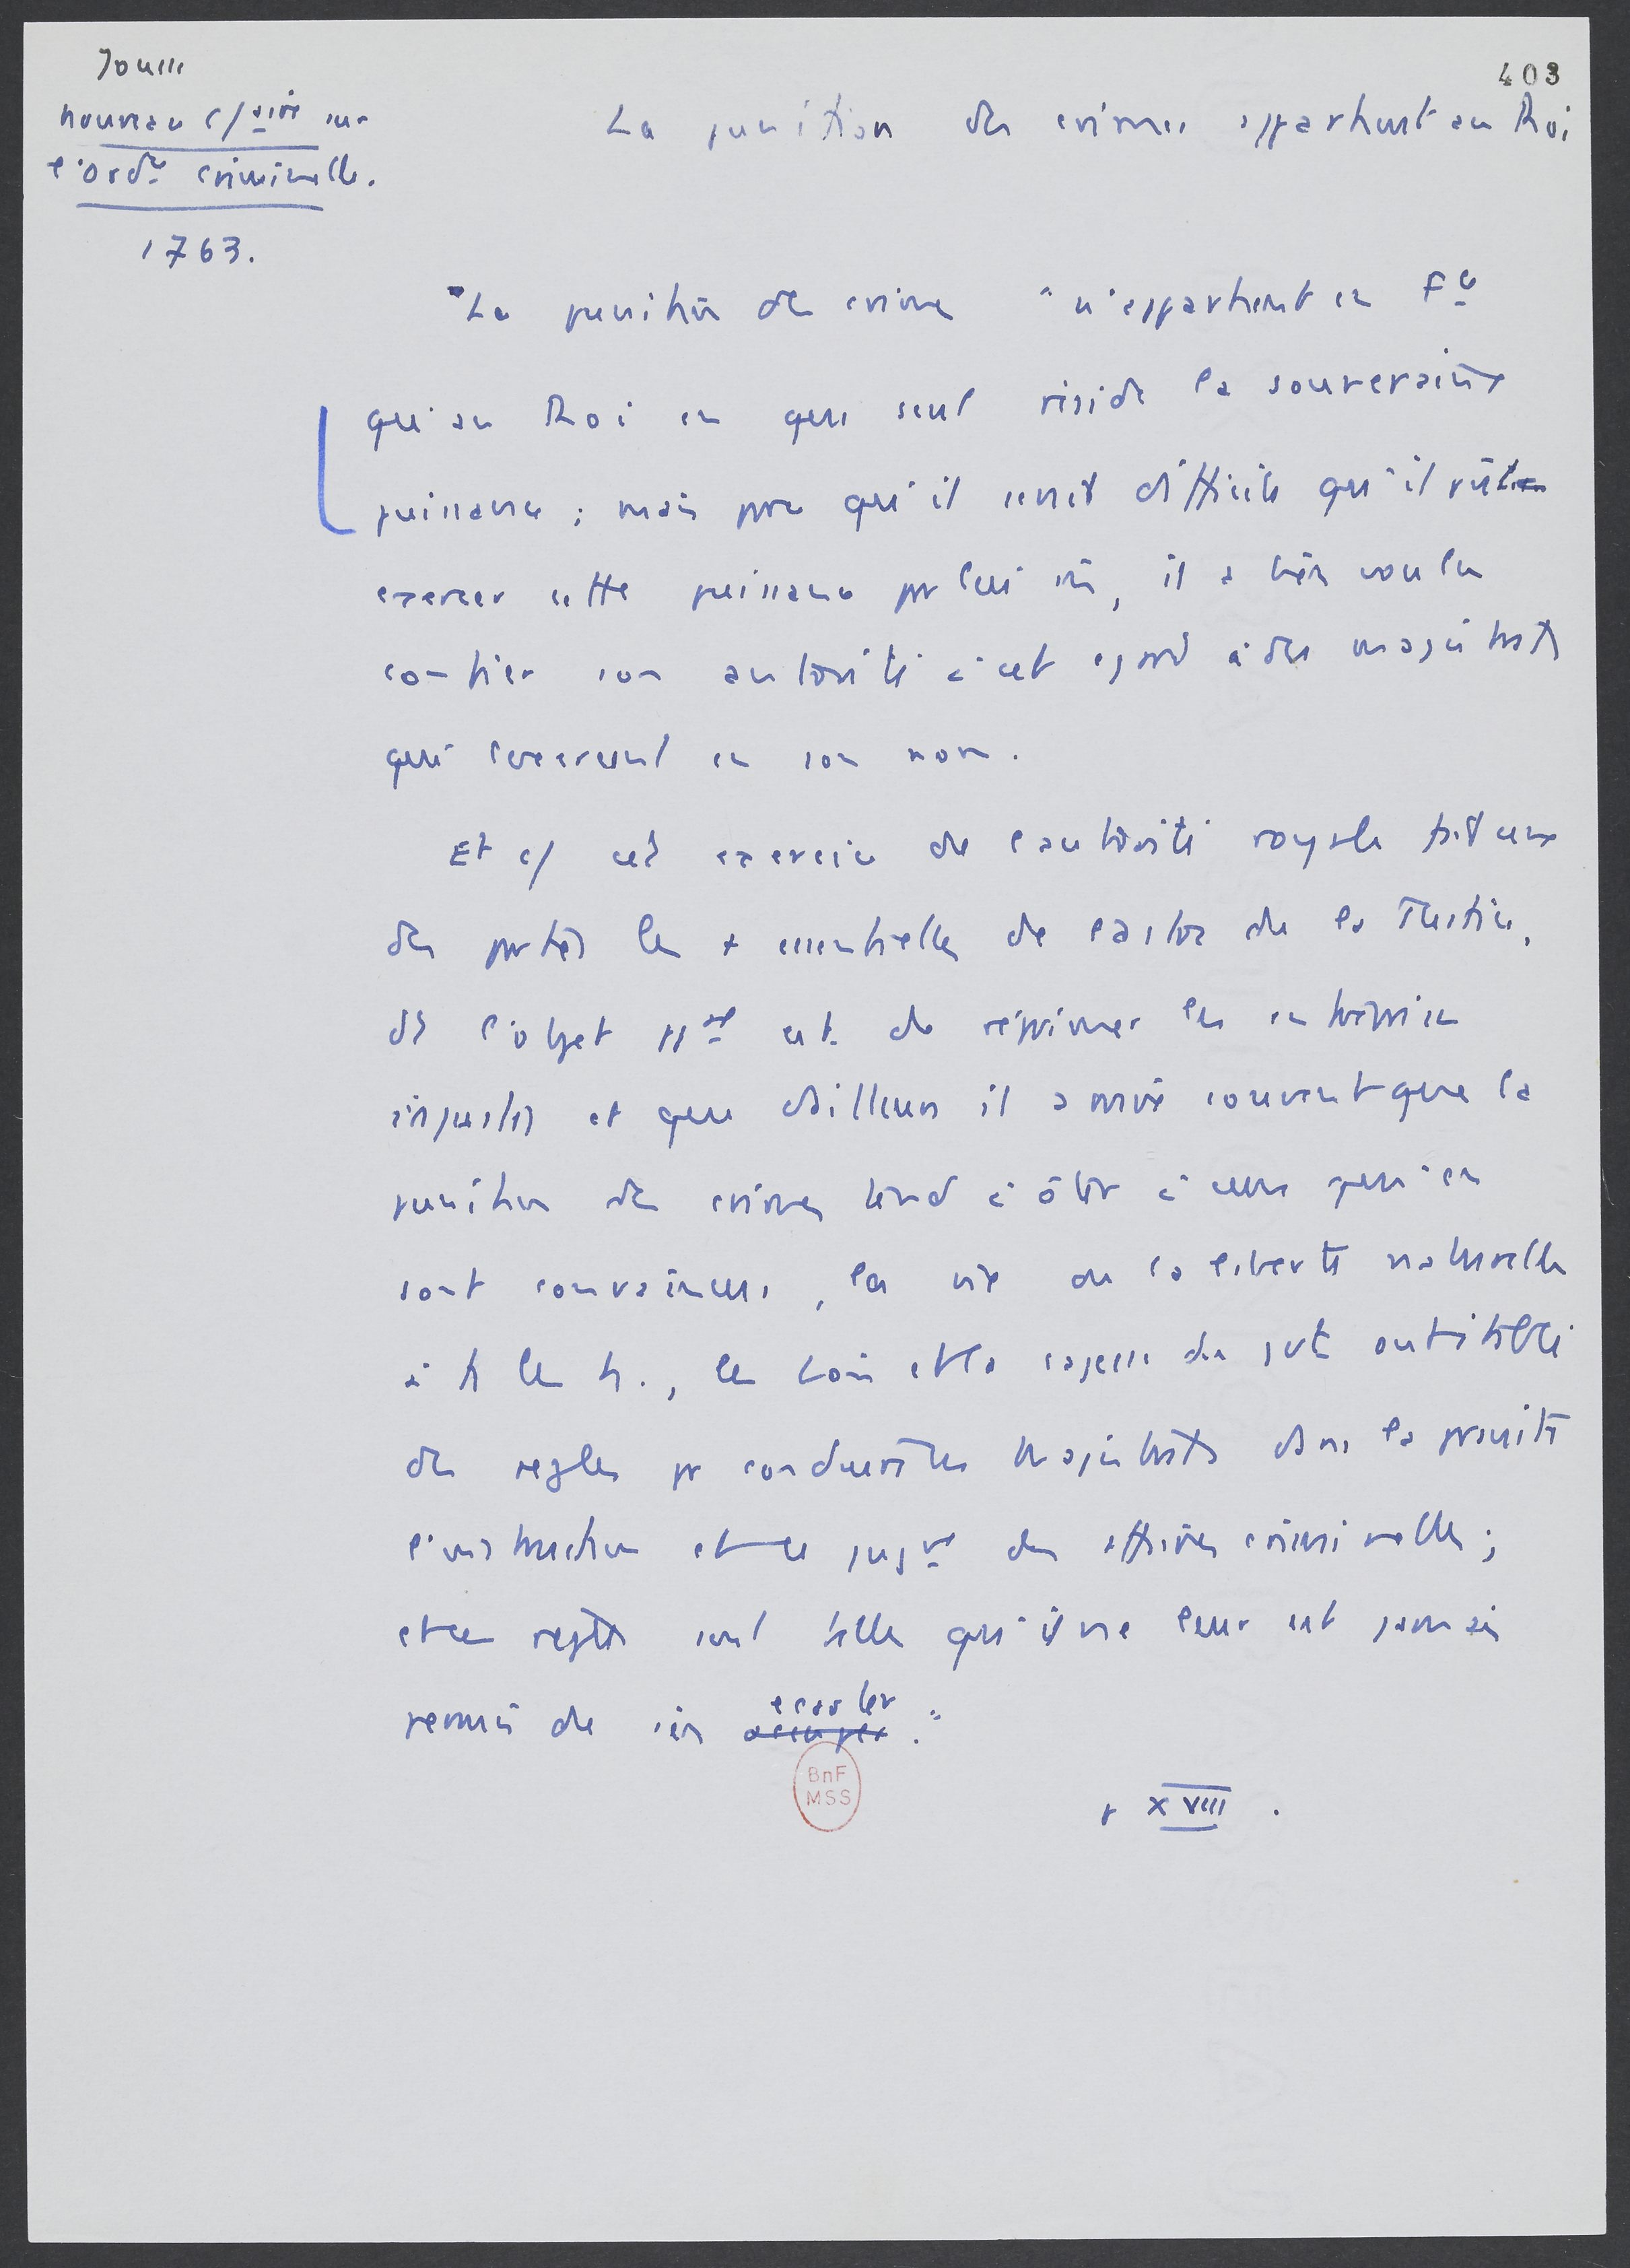 Jousse
403
nouveau c/aire sur
l'Ordce criminelle.
1763.
La punition des crimes appartient au Roi
"La punition des crimes "n'appartient en Fce
qu'au Roi en qui seul réside la souveraine
puissance ; mais pce qu'il serait difficile qu'il
exercer cette puissance pr lui m̄, il a bien voulu
confier son autorité à cet égard à des magistrats
qui l'exercent en son nom.
Et c/ cet exercice de l'autorité royale fait une
des parties les + essentielles de l'adon de la Justice,
dt l'objet ppal est de réprimer les entreprises
injustes et que d'ailleurs il arrive souvent que la
punition des crimes tend à ôter à ceux qui en
sont convaincus, la vie ou la liberté naturelle
à ts les h., les lois et la sagesse du gvt ont établi
des règles pr conduire les Magistrats dans la prsuite
l'instruction et le jugt des affaires criminelles ;
et ces règles sont telles qu'il ne leur est jamais
permis de s'en occuper écarter."
p XVIII.
BnF
MSS